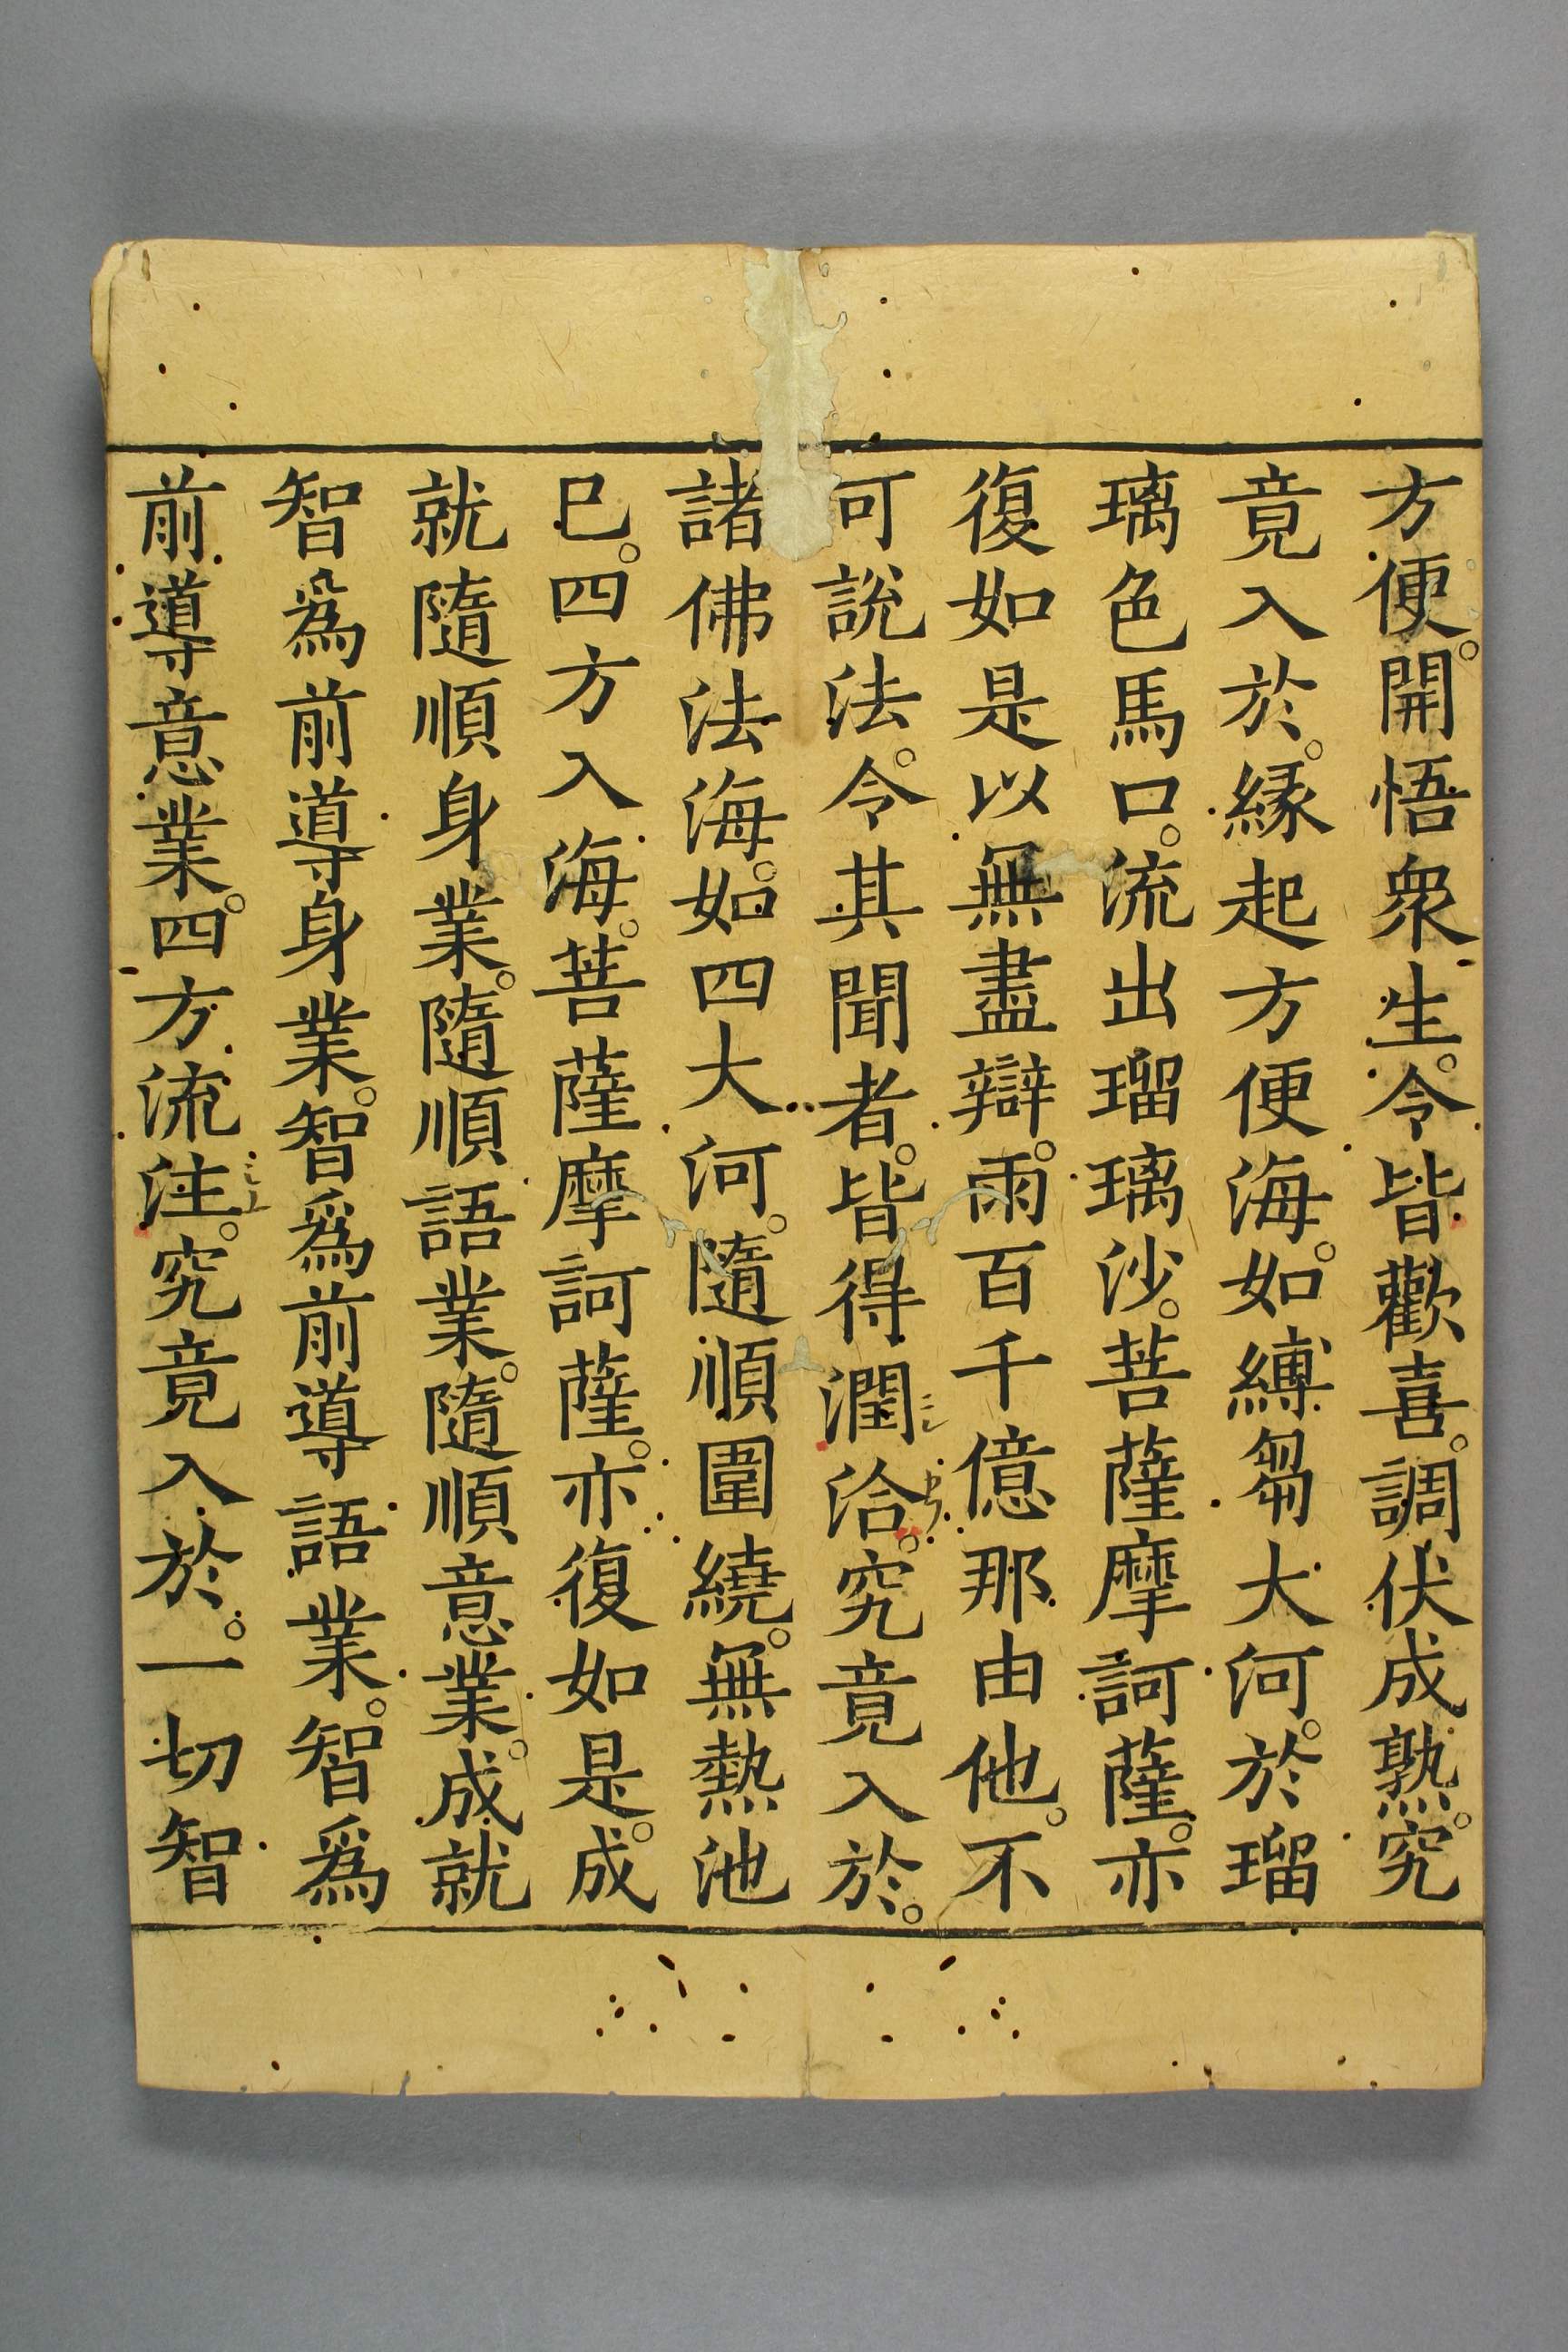 方便。開悟衆生。令皆歡喜。調伏成熟。究
竟入於。縁起方便海。如縛芻大河。於瑠
璃色馬口。流出瑠璃沙。菩薩摩訶薩。亦
復如是以無盡辯。雨百千億那由他。不
可說法。令其聞者。皆得潤洽。究竟入於。
諸佛法海。如四大河。隨順圍繞。無熱池
巳。四方入海。菩薩摩訶薩。亦復如是。成
就隨順身業。隨順語業。隨順意業。成就
智爲前導身業。智爲前導語業。智爲
前導意業。四方流注。究竟入於。一切智